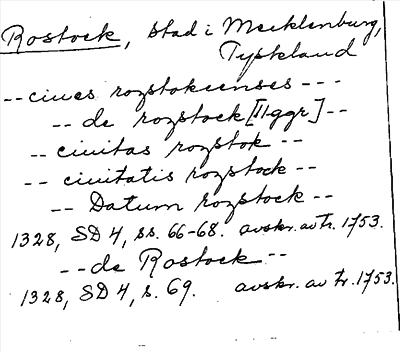 Rostock, stad i Mecklenburg,
Tyskland
-- ciues rozstokcenses ---
-- de rozstock [2 ggr] --
-- ciuitas rozstok --
-- ciuitatis rozstock --
-- Datum rozstock --
1328, SD 4, ss. 66-68. avskr. av tr. 1753.
-- de Rostock --
1328, SD 4, s. 69. avskr. av tr. 1753.